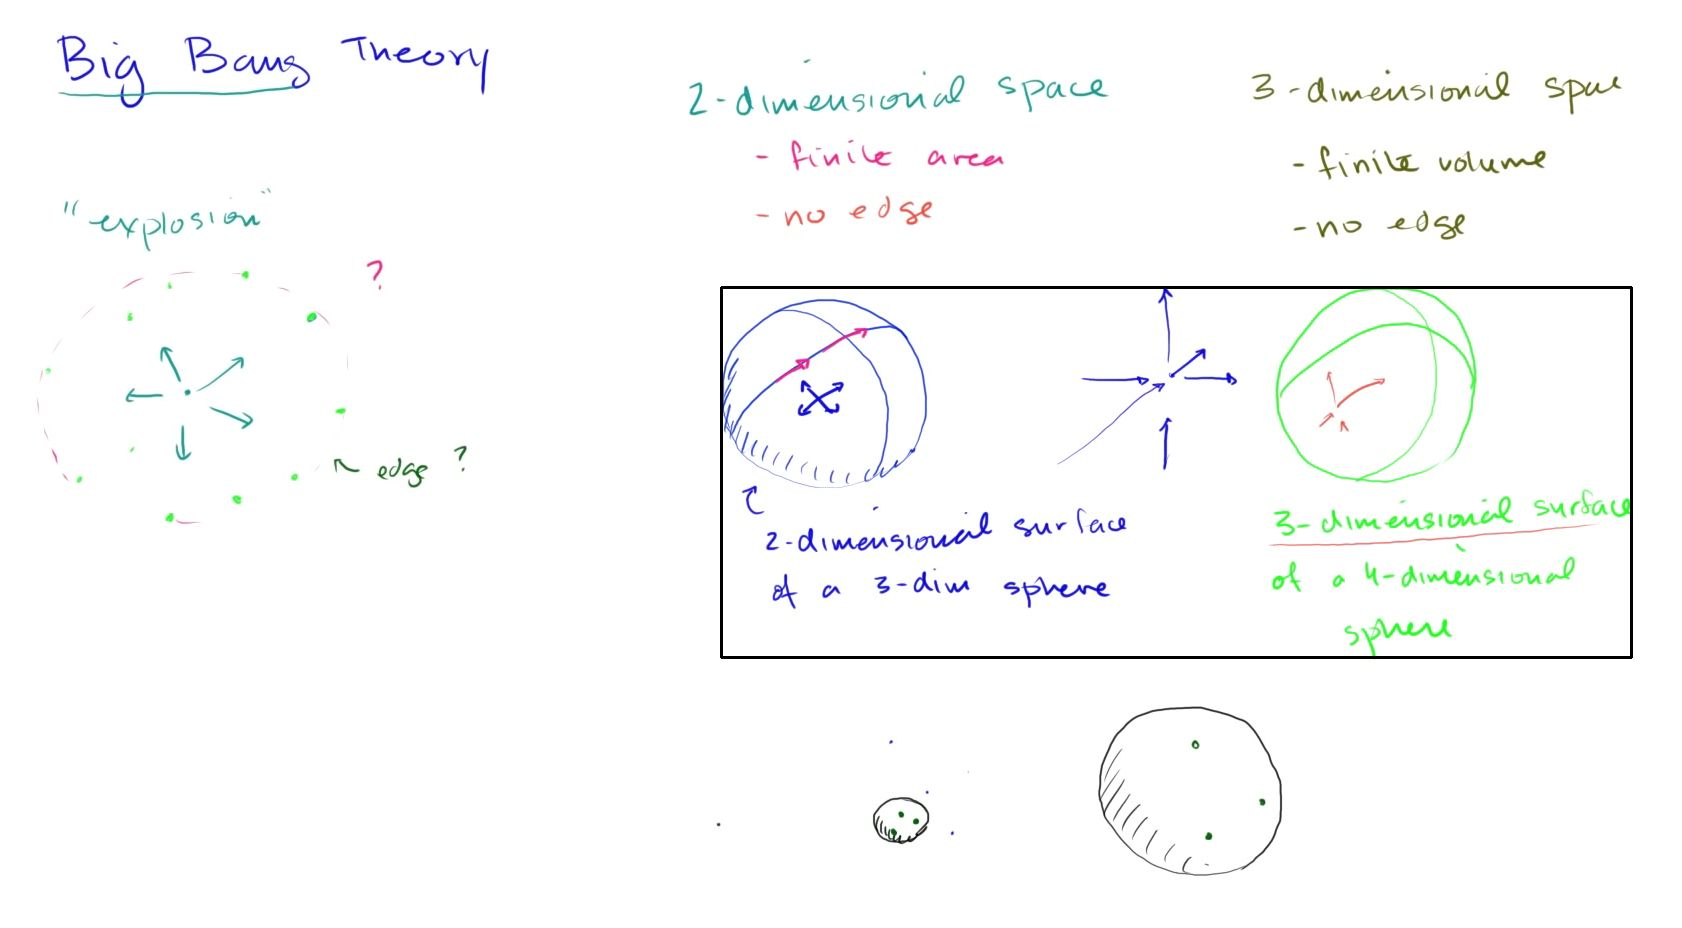 Big Bang Theory
"explosion"
?
edge ?
2-dimensional space
- finite area
- no edge
3-dimensional space
- finite volume
- no edge
2-dimensional surface
of a 3-dim sphere
3-dimensional surface
of a 4-dimensional
sphere